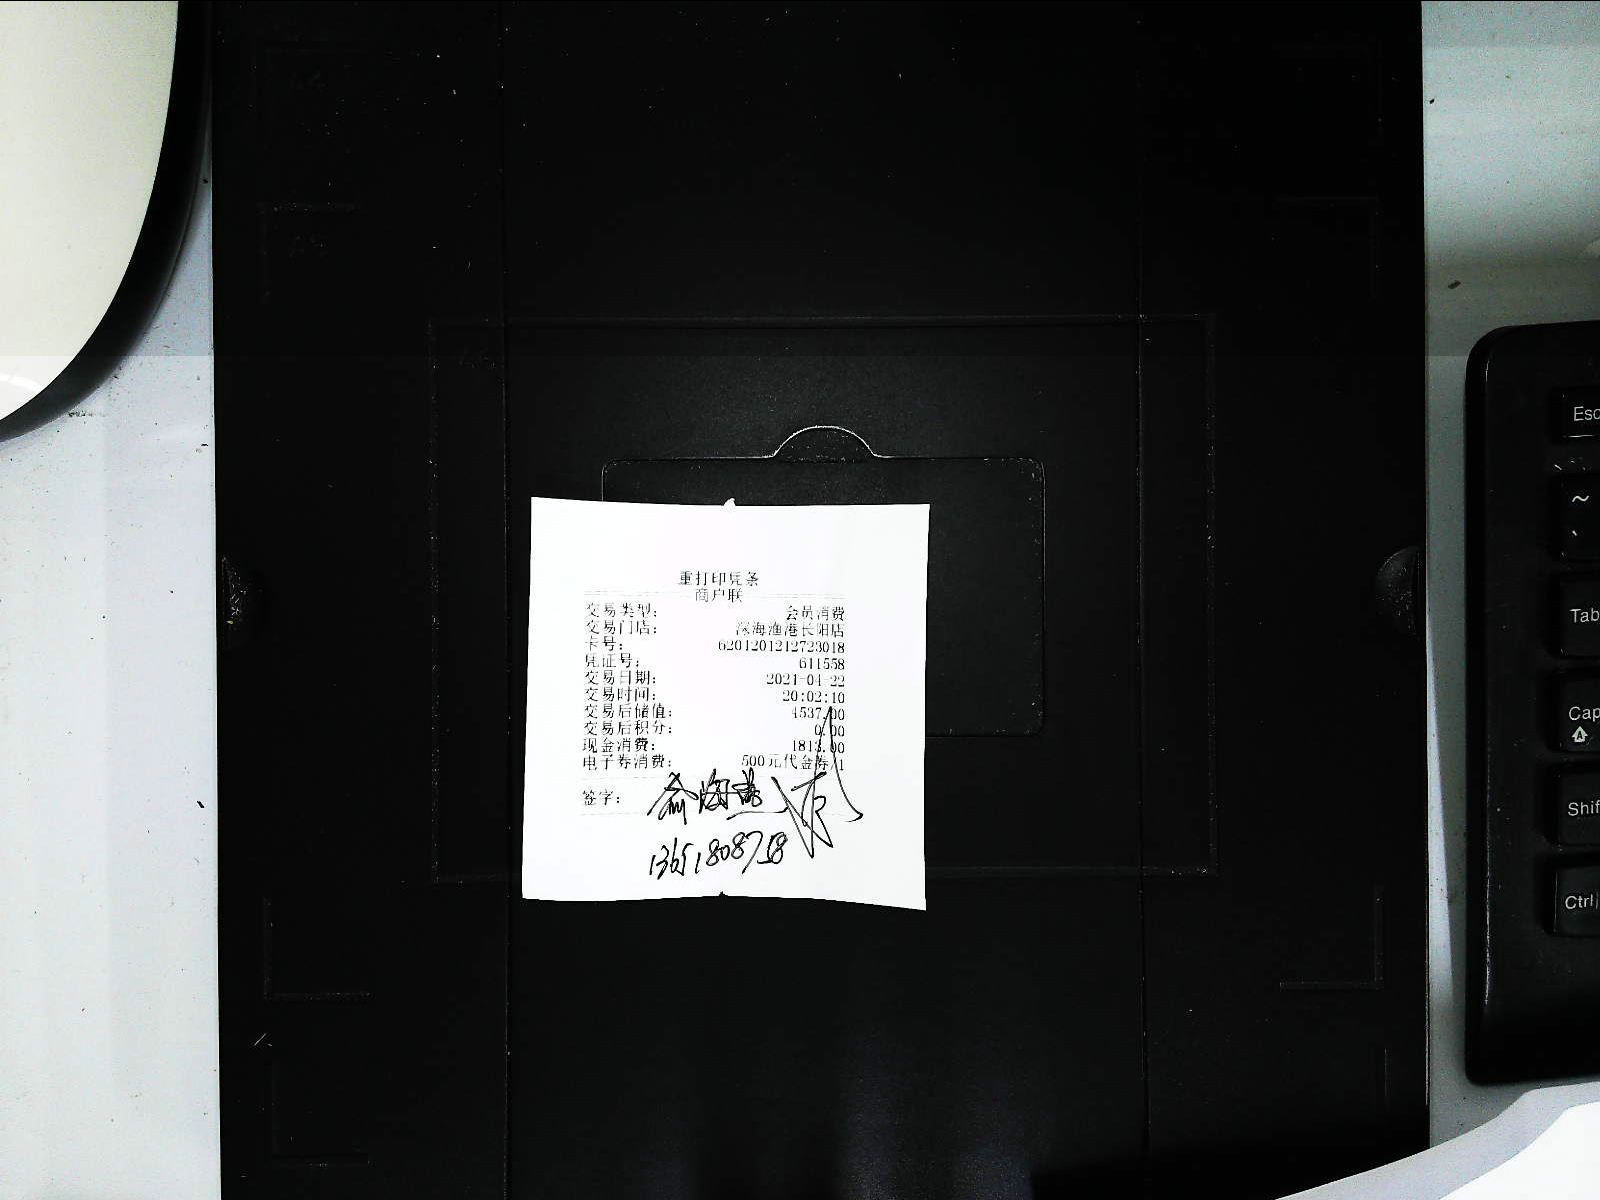 重打印凭条
商户联
交易类型： 会员消费
交易门店： 深海渔港长阳店
卡号： 6201201212723018
凭证号： 611558
交易日期： 2021-04-22
交易时间： 20:02:10
交易后储值： 4537.00
交易后积分： 0.00
现金消费： 1813.00
电子券消费： 500元代金券/1
签字：
13651808758
Esc
~
`
Tab
Cap
Shif
Ctrl